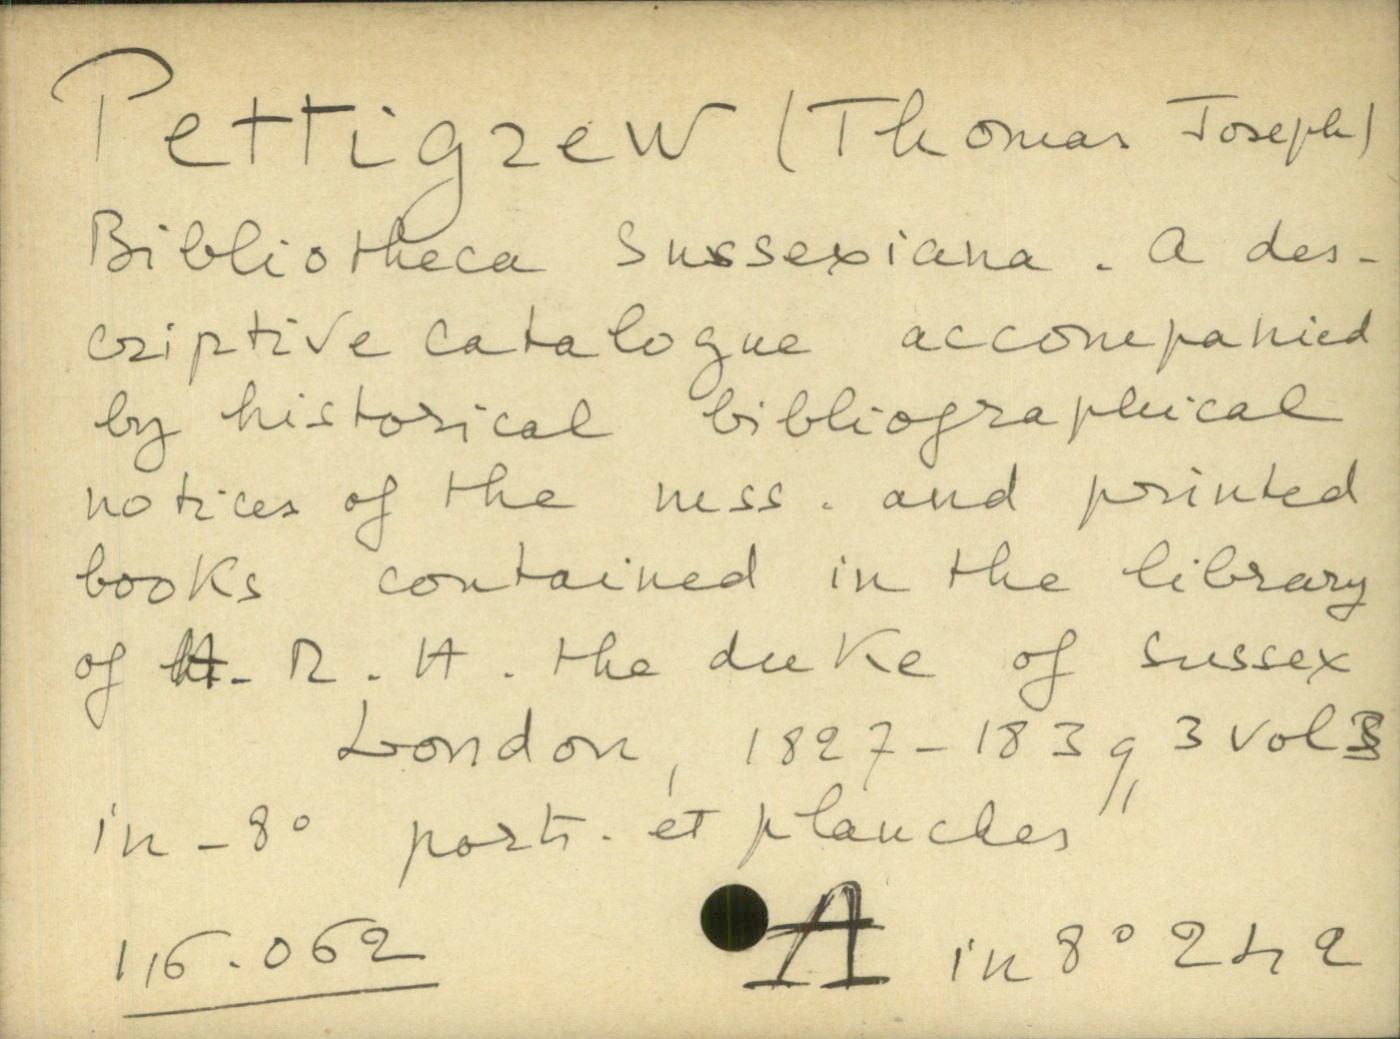 Pettigrew (Thomas Joseph)
Bibliotheca Sussexiana. A des-
criptive catalogue accompanied
by historical bibliographical
notices of the mss. and printed
books contained in the library
of H. R. H. the duke of Sussex
London, 1827-1839, 3 vols
in-8° portr. et planches
116.062 A in 8° 242